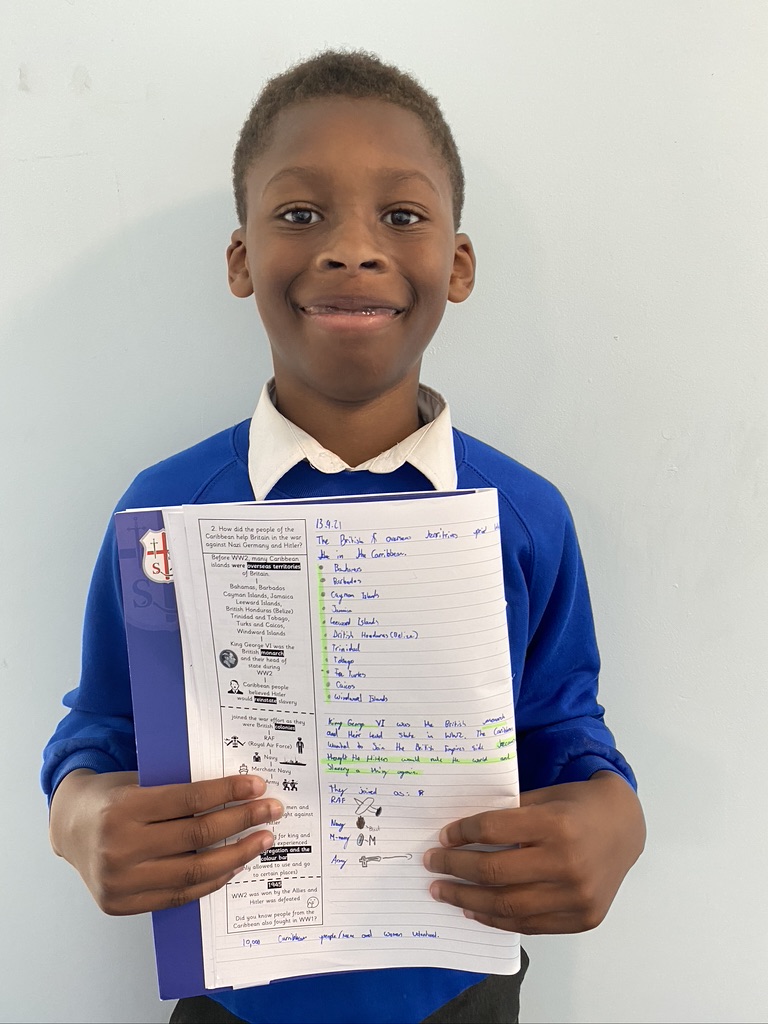 2. How did the people of the
Caribbean help Britain in the war
against Nazi Germany and Hitler?
Before WW2, many Caribbean
islands were overseas territories
of Britain.
Bahamas, Barbados
Cayman Islands, Jamaica
Leeward Islands,
British Honduras (Belize)
Trinidad and Tobago,
Turks and Caicos,
Windward Islands
King George VI was the
British monarch
and their head of
state during
WW2
Caribbean people
believed Hitler
would reinstate slavery
joined the war effort as they
were British colonies
RAF
(Royal Air Force)
Navy
Merchant Navy
Army
men and
ught against
itler
g for king and
y experienced
gregation and the
colour bar
nly allowed to use and go
to certain places)
1945
WW2 was won by the Allies and
Hitler was defeated
Did you know people from the
Caribbean also fought in WW1?
13.9.21
The British overseas
the in the Caribbean.
Bahamas
Barbados
Cayman Islands
Jamaica
Leeward Islands
British Honduras (Belize)
Trinidad
Tobago
Turks
Caicos
Windward Islands
King George VI was the British monarch
and their head state in WW2. The
wanted to Join the British Empires side
thought the Hitler would rule the world and
Slavery a thing again.
They Joined as:
RAF
Navy
M-navy
M
Army
10,000 Carribbean people/men and women
S